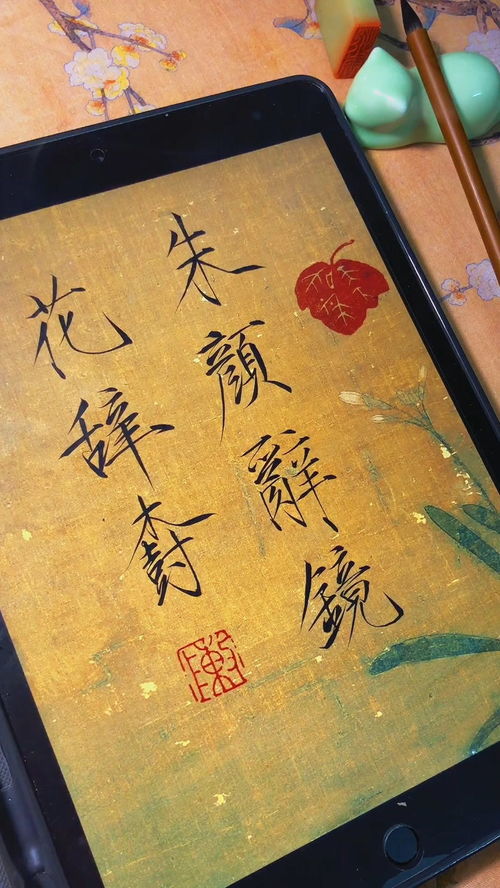 朱顏辭鏡
花辞樹